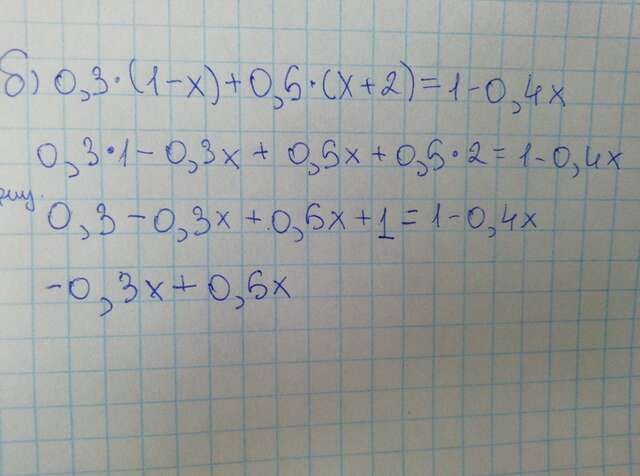 б) 0,3·(1-x)+0,5·(x+2)=1-0,4x
0,3·1-0,3x+0,5x+0,5·2=1-0,4x
0,3-0,3x+0,5x+1=1-0,4x
-0,3x+0,5x